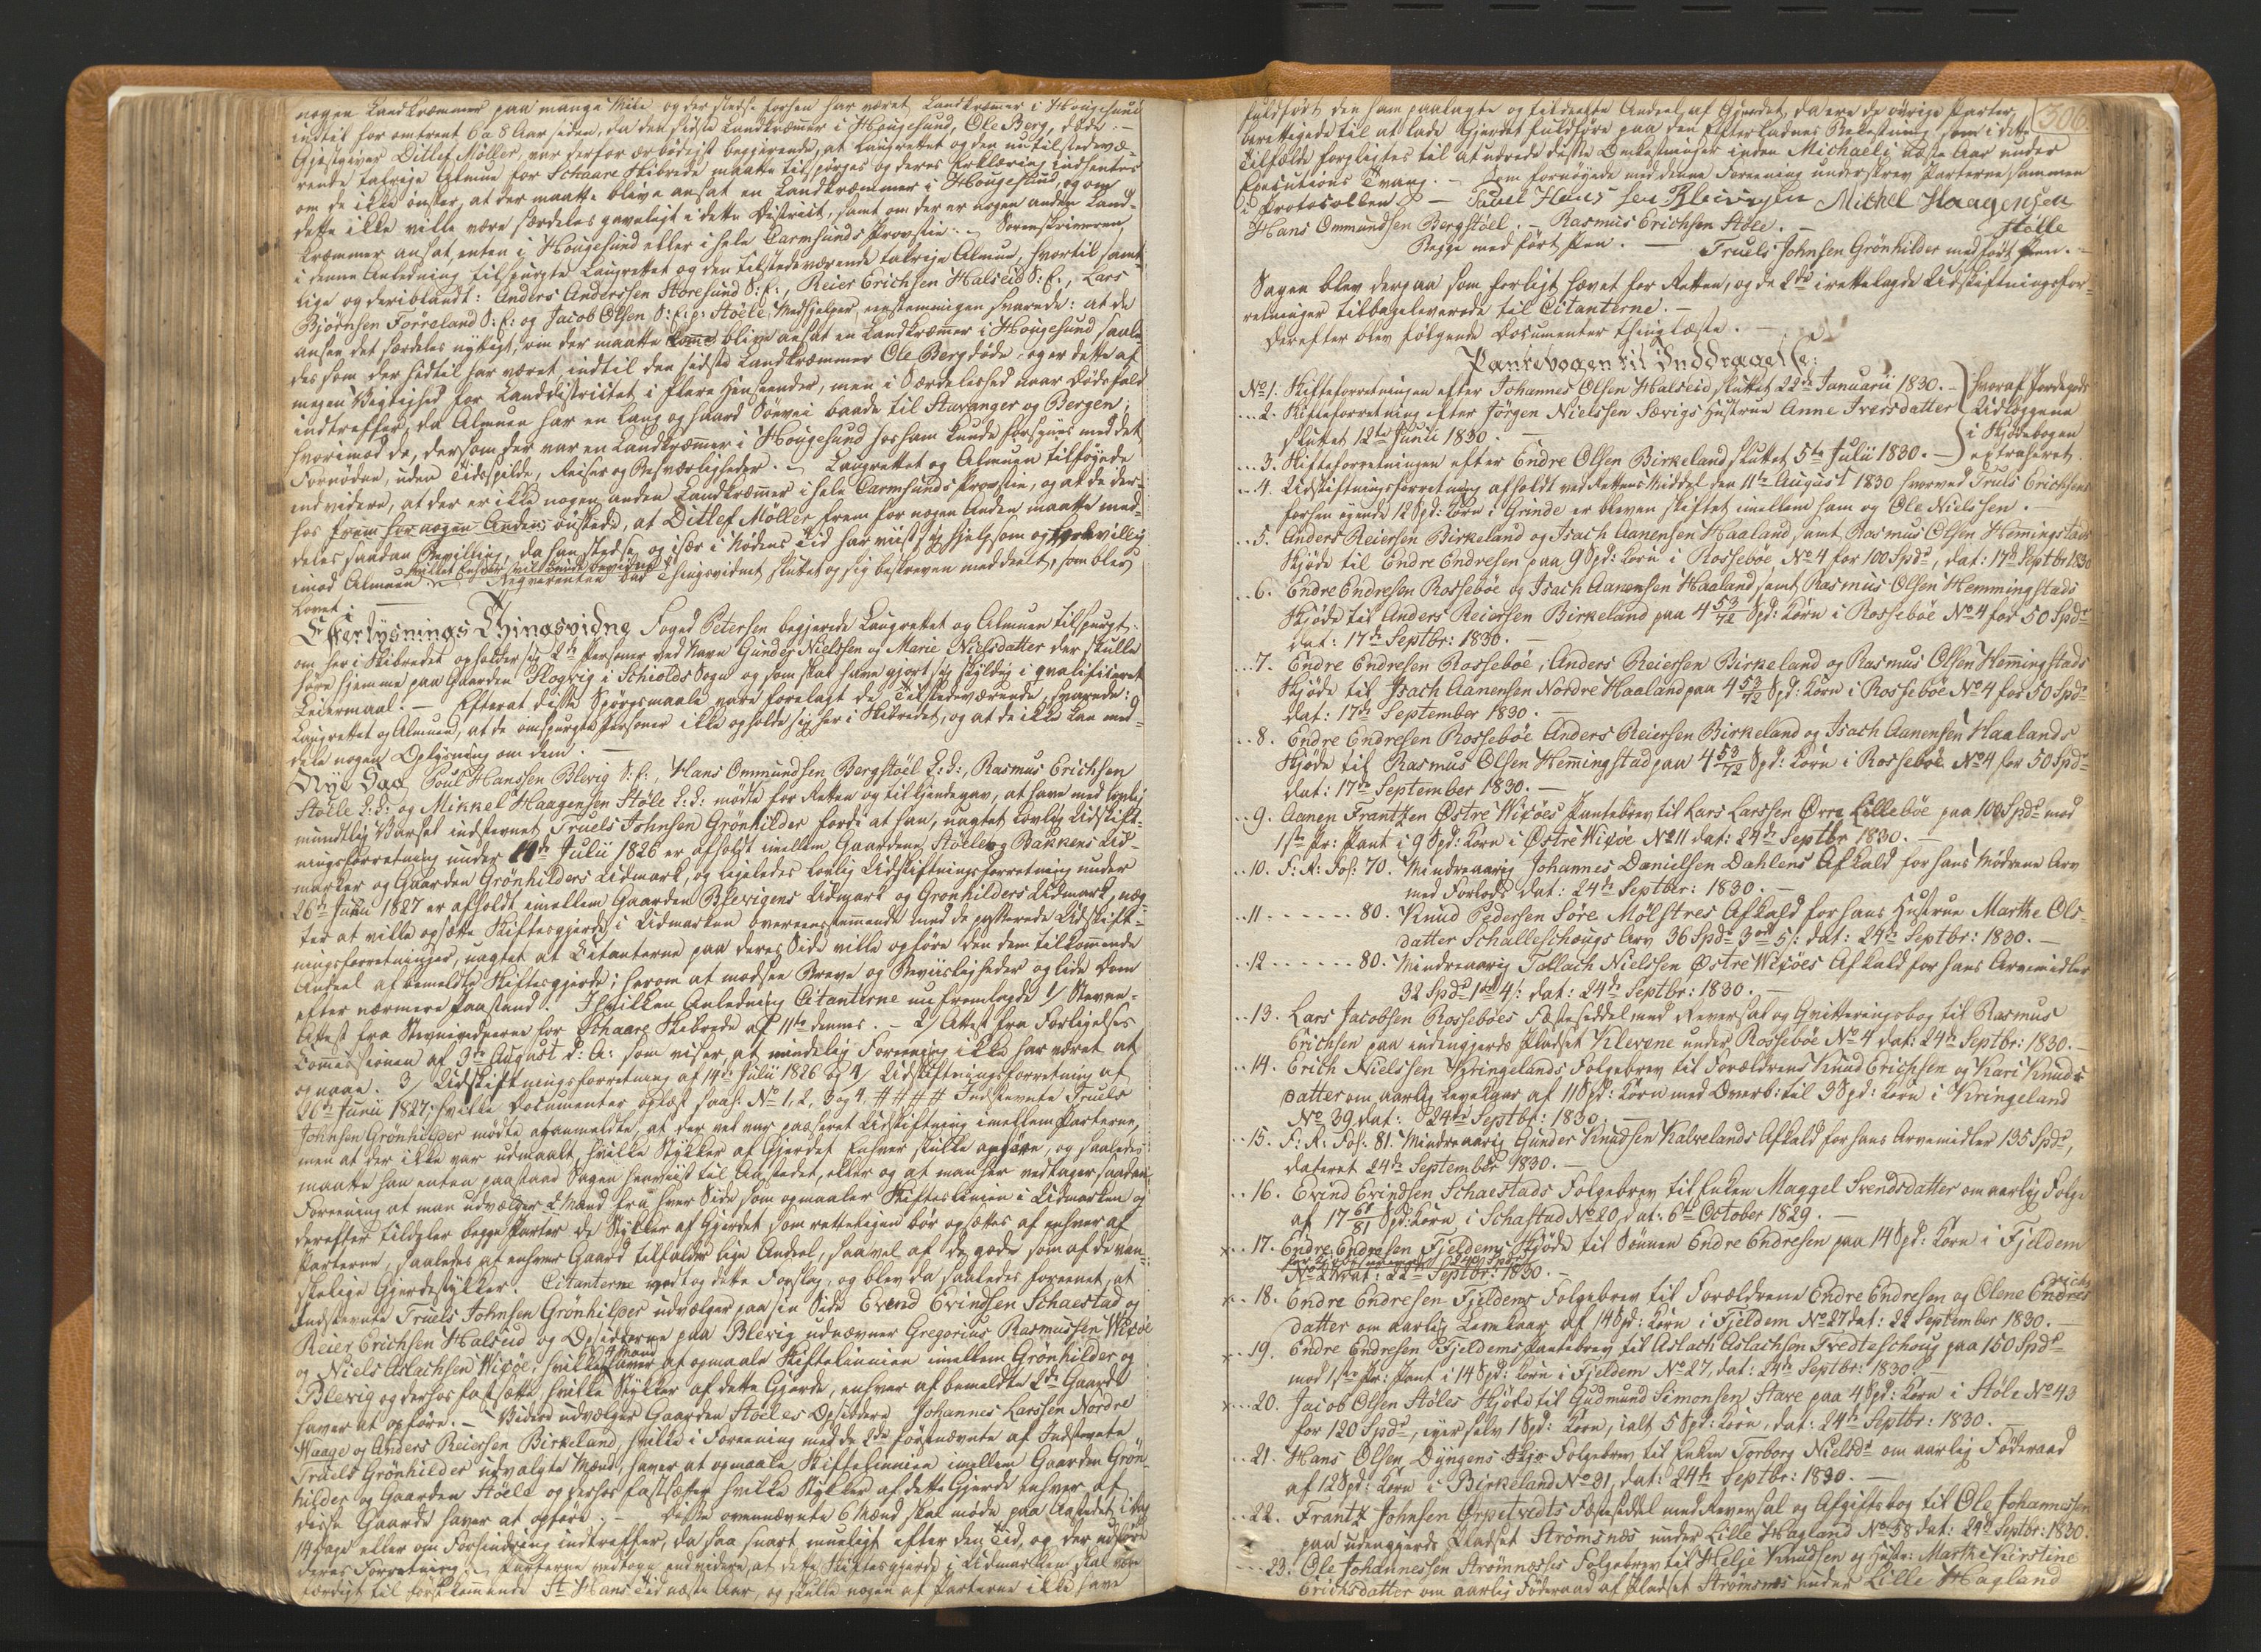 nogen Landkræmmer paa mange Mile og der stedse forhen har været Landkræmer i Hougesund
indtil for omtrent 6 a 8 Aar siden, da den sidste Landkræmer i Hougesund, Ole Berg, døde. —
Gjestgiver Ditlef Møller, var derfor ærbødigst begjerende, at Laugrettet og den nu tilstedevæ-
rende talrige Almue for Schaare Skibrede maatte tilspørges og deres Erklæring indhentes
om de ikke ønsker, at der maatte blive ansat en Landkræmmer i Hougesund, og om
dette ikke ville være særdeles gavnligt i dette District, samt om der er nogen anden Land-
kræmmer ansat enten i Hougesund eller i hele Carmsunds Provstie. — Sorenskriveren
i denne Anledning tilspurgte Laugrettet og den tilstedeværende talrige Almue, hvortil samt-
lige og deriblandt: Anders Anderssen Storesund S: f:, Reier Erichsen Halseid S: f:, Lars
Bjørnsen Førreland S: f: og Jacob Olsen Støele, Medhjelper eenstemmigen svarede: at de
ansee det særdeles nyttigt, om der maatte komme blive ansat en Landkræmer i Hougesund saale-
des som der hidtil har været, indtil den sidste Landkræmmer Ole Berg døde, og er dette af
megen Vigtighed for Landdistrictet i flere Henseender, men i Særdeleshed naar Dødsfald
indtreffer, da Almuen har en lang og haard Søevei baade til Stavanger og Bergen;
hvorimod de, dersom der var en Landkræmer i Hougesund hos ham kunde forsynes med det
Fornødne, uden Tidsspilde, Reiser og Besværligheder. — Laugrettet og Almuen tilføyede
endvidere, at der er ikke nogen anden Landkræmer i hele Carmsunds Provstie, og at de der-
hos frem for nogen Anden ønskede, at Ditlef Møller frem for nogen Anden maatte med-
deles saadan Bevilling, da han stedse og især i Nødens Tid har viist sig hjelpsom og forevillig
imod Almuen hvilket Enhver vil kunde bevidne. — Reqvirenten bad Thingsvidnet sluttet og sig beskreven meddeelt, som blev
lovet. —
Efterlysnings Thingsvidne Foged Petersen begjerede Laugrettet og Almuen tilspurgt:
om her i Skibredet opholder sig 2de Personer ved Navn Gunder Nielssen og Marie Nielsdatter der skulle
høre hjemme paa Gaarden Flogvig i Schiolds Sogn og som skal have gjort sig skyldig i qvalificeret
Leiermaal. — Efterat disse Spørgsmaale vare forelagt de Tilstedeværende, svarede:
Laugrettet og Almuen, at de omspurgte Personer ikke opholde sig her i Skibredet, og at de ikke kan med-
dele nogen Oplysning om dem. —
Nye Sag Poul Hanssen Blevig S: f:, Hans Ommundsen Bergstøel L: D:, Rasmus Erichsen
Stølle L: D: og Mikkel Haagensen Støle L: D: mødte for Retten og tilkjendegav, at have med lovlig
mundtlig Varsel indstevnet Truels Johnsen Grönhilder fordi at han, uagtet lovlig Udskift-
ningsforretning under 14de Julii 1826 er afholdt imellem Gaardene Støele og Bakkens Ud-
marker og Gaarden Grönhilders Udmark, og ligeledes lovlig Udskiftningsforretning under
26de Junii 1827 er afholdt imellem Gaarden Blevigens Udmark og Grønhilders Udmark, næg-
ter at ville opsette Skiftesgjerde i Udmarken overeensstemmende med de passerede Udskift-
ningsforretninger, uagtet at Citanterne paa deres Side ville opføre den dem tilkommende
Andeel af bemeldte Skiftesgjerde; herom at modsee Breve og Beviisligheder og lide Dom
efter nærmere Paastand. I hvilken Anledning Citanterne nu fremlagde 1/ Stevne-
Attest fra Stevnevidnerne for Schaare Skibrede af 11te dennes. — 2/ Attest fra Forligelses
Commissionen af 3de August d: A: som viser, at mindelig Foreening ikke har været at
opnaae. 3/ Udskiftningsforretning af 14de Julii 1826 og 4/ Udskiftningsforretning af
26de Junii 1827; hvilke Documenter oplæst saal: No 1, 2, 3 og 4, #### Indstevnte Truels
Johnsen Grönhilder mødte og anmeldte, at der vel var passeret Udskiftning imellem Parterne,
men at der ikke var udmaalt, hvilke Stykker af Gjerdet Enhver skulle opføre, og saaledes
maatte han enten paastaae Sagen henviist til Aastedet, eller og at man her vedtager saadan
Foreening at man udvælger 2 Mænd fra hver Side som opmaaler Skifteslinien i Udmarken og
derefter tildeler begge Parter de Stykker af Gjerdet som rettelig bør opsættes af enhver af
Parterne, saaledes at enhver Gaard tilfalder lige Andeel, saavel af de gode som af de van-
skelige Gjerdestykker. Citanterne vedtog dette Forslag, og blev da saaledes foreenet, at
Indstevnte Truels Johnsen Grönhilder udvælger paa sin Side Evend Evindsen Schaestad og
Reier Erichsen Halseid og Opsidderne paa Blevig udnævner Gregorius Rasmussen Wixøe
og Niels Aslachsen Wixøe, hvilke 4 Mænd haver at opmaale Skiftelinien imellem Grönhilder og
Blevig og derhos fastsætte, hvilke Stykker af dette Gjerde, enhver af bemeldte 2de Gaarde
haver at opføre. — Videre udvælger Gaarden Støeles Opsiddere Johannes Larssen Nordre
Waage og Anders Reiersen Birkeland hvilke i Foreening med de 2de førstnævnte af Indstevnte
Truels Grönhilder udvalgte Mænd, haver at opmaale Skiftelinien imellem Gaarden Grön-
hilder og Gaarden Støele og derhos fastsætte hvilke Stykker af dette Gjerde enhver af
disse Gaarde haver at opføre. — Disse ovennævnte 6 Mænd skal møde paa Aastedet i dag
14 Dage eller om Forhindring indtreffer, da saa snart mueligt efter den Tid, og der udføre
deres Forretning. Parterne vedtoge endvidere at dette Skiftesgjerde i Udmarken skal være
færdigt til førstkommende St Hans Tid næste Aar, og skulle nogen af Parterne ikke have
306
fuldført den ham paalagte og tildeelte Andeel af Gjerdet, da ere de øvrige Parter
berettigede til at lade Gjerdet fuldføre paa den Efterladnes Bekostning som i dette
Tilfælde forpligtes til at udrede disse Omkostninger inden Michaeli næste Aar under
Executions Tvang. — Som fornøyede med denne Foreening underskrev Parterne sammen
i Protocollen. — Pauel Hans sen Bleivigen Michel Haagensen
Stölle
Hans Ommundsen Bergstöel. — Rasmus Erichsen Støle. —
Begge med ført Pen. — Truels Johnsen Grönhilder med ført Pen. —
Sagen blev derpaa som forligt hævet for Retten, og de 2de irettelagde Udskiftningsfor-
retninger tilbageleverede til Citanterne. —
Derefter blev følgende Documenter thinglæste. —
Pantebogen til Inddragelse:
No 1. Skifteforretningen efter Johannes Olsen Halseid sluttet 22de Januarii 1830. — hvoraf Jordegods
... 2. Skifteforretning efter Jörgen Nielssen Sævigs Hustrue Anne Iversdatter Udlæggene
sluttet 12te Junii 1830. — i Skjødebogen
... 3. Skifteforretningen efter Endre Olsen Birkeland sluttet 5te Julii 1830. — extraheret.
... 4. Udskiftningsforretning afholdt ved Rettens Middel den 11te August 1830 hvorved Truls Erichsens
forhen eyende 12 Spd: Korn i Grinde er bleven skiftet imellem ham og Ole Nielssen. —
... 5. Anders Reiersen Birkeland og Isach Aanensen Haaland samt Rasmus Olsen Hemingstads
Skjøde til Endre Endresen paa 9 Spd: Korn i Rossebøe No 4 for 100 Spdr, dat: 17de Septbr 1830
... 6. Endre Endresen Rossebøe og Isach Aanensen Haaland samt Rasmus Olsen Hemmingstads
Skjøde til Anders Reiersen Birkeland paa 4 53/72 Spd: Korn i Rossebøe No 4 for 50 Spdr
dat: 17de Septbr: 1830. —
... 7. Endre Endresen Rossebøe, Anders Reiersen Birkeland og Rasmus Olsen Hemingstads
Skjøde til Isach Aanensen Nordre Haaland paa 4 53/72 Spd: Korn i Rossebøe No 4 for 50 Spdr
dat: 17de September 1830. —
... 8. Endre Endresen Rossebøe Anders Reiersen Birkeland og Isach Aanensen Haalands
Skjøde til Rasmus Olsen Hemingstad paa 4 53/72 Spd: Korn i Rossebøe No 4 for 50 Spdr
dat: 17de September 1830. —
... 9. Aanen Frantzen Østre Wixöes Pantebrev til Lars Larssen Ørre Lillebøe paa 100 Spdr mod
1ste Pr: Pant i 9 Spd: Korn i Østre Wixöe No 11 dat: 24de Septbr 1830. —
.. 10. F: R: Fol: 70. Mindreaarig Johannes Danielsen Dahlens Afkald for hans Mödrene Arv
med Forlods dat: 24de Septbr: 1830. —
.. 11 - - - - - - 80. Knud Pedersen Söre Mölstres Afkald for hans Hustrue Marthe Ols-
datter Schalleschougs Arv 36 Spdr 3 ort 5 s: dat: 24de Septbr: 1830. —
.. 12 - - - - - - 80. Mindreaarig Tollach Nielssen Østre Wixöes Afkald for hans Arvemidler
32 Spdr 1 ort 4 s: dat: 24de Septbr: 1830. —
.. 13. Lars Jacobsen Rossebøes Fæsteseddel med Reversal og Qvitteringsbog til Rasmus
Erichsen paa indengjerds Pladset Klevene under Rossebøe No 4 dat: 24de Septbr: 1830. —
.. 14. Erich Nielssen Kringelands Folgebrev til Forældrene Knud Erichsen og Kari Knuds-
datter om aarlig Levekaar af 11 Spd: Korn med Overb: til 3 Spd: Korn i Kringeland
No 39 dat: 24de Septbr: 1830. —
.. 15. F: R: Fol: 81. Mindreaarig Gunder Knudsen Kalvelands Afkald for hans Arvemidler 135 Spdr,
dateret 24de September 1830. —
.. 16. Evind Evindsen Schaestads Folgebrev til Enken Maggel Svendsdatter om aarlig Folge
af 17 61/81 Spd: Korn i Schastad No 20 dat: 6te October 1829. —
x .. 17. Endre Endresen Fjeldems Skjøde til Sønnen Endre Endresen paa 14 Spd: Korn i Fjeldem
No 27 dat: 22de Septbr: 1830. —
x .. 18. Endre Endresen Fjeldems Folgebrev til Forældrene Endre Endresen og Olene Endres
datter om aarlig Levekaar af 14 Spd: Korn i Fjeldem No 27 dat: 22 September 1830. —
x .. 19. Endre Endresen Fjeldems Pantebrev til Aslach Aslachsen Tvedteschoug paa 150 Spdr
mod 1ste Pr: Pant i 14 Spd: Korn i Fjeldem No 27, dat: 24de Septbr: 1830. —
x ... 20. Jacob Olsen Støles Skjøde til Gudmund Simonsen Stave paa 4 Spd: Korn i Støle No 43
for 120 Spdr, eyer selv 1 Spd: Korn, ialt 5 Spd: Korn, dat: 24de Septbr: 1830. —
.. 21. Hans Olsen Dyngens Folgebrev til Enken Torborg Nielsdr om aarlig Føderaad
af 12 Spd: Korn i Birkeland No 31, dat: 24de Septbr: 1830. —
.. 22. Frantz Johnsen Grpetvedts Fæsteseddel med Reversal og Afgiftsbog til Ole Johannesen
paa udenggjerds Pladset Strömsnæs under Lille Hagland No 58 dat: 24de Septbr: 1830.
... 23. Ole Johannessen Strömnæsses Folgebrev til Helje Knudsen og Hustr: Marthe Kirstine
Erichsdatter om aarlig Føderaad af Pladset Strömsnæs under Lille Hagland